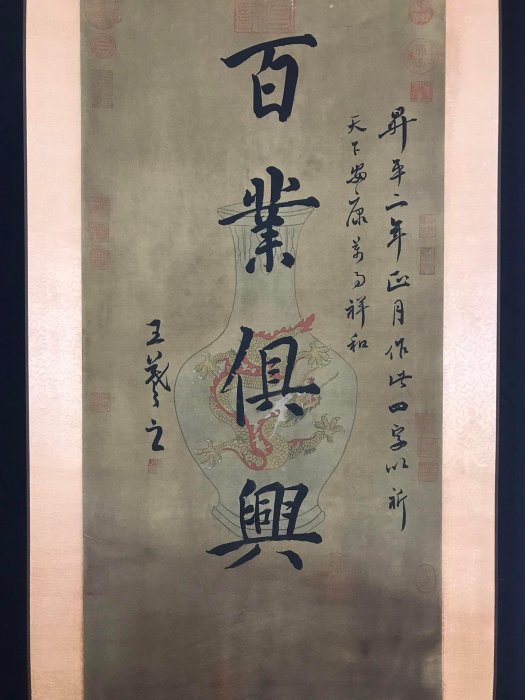 昇平二年正月作此四字以祈
天下安康萬事祥和
百業俱興
王羲之